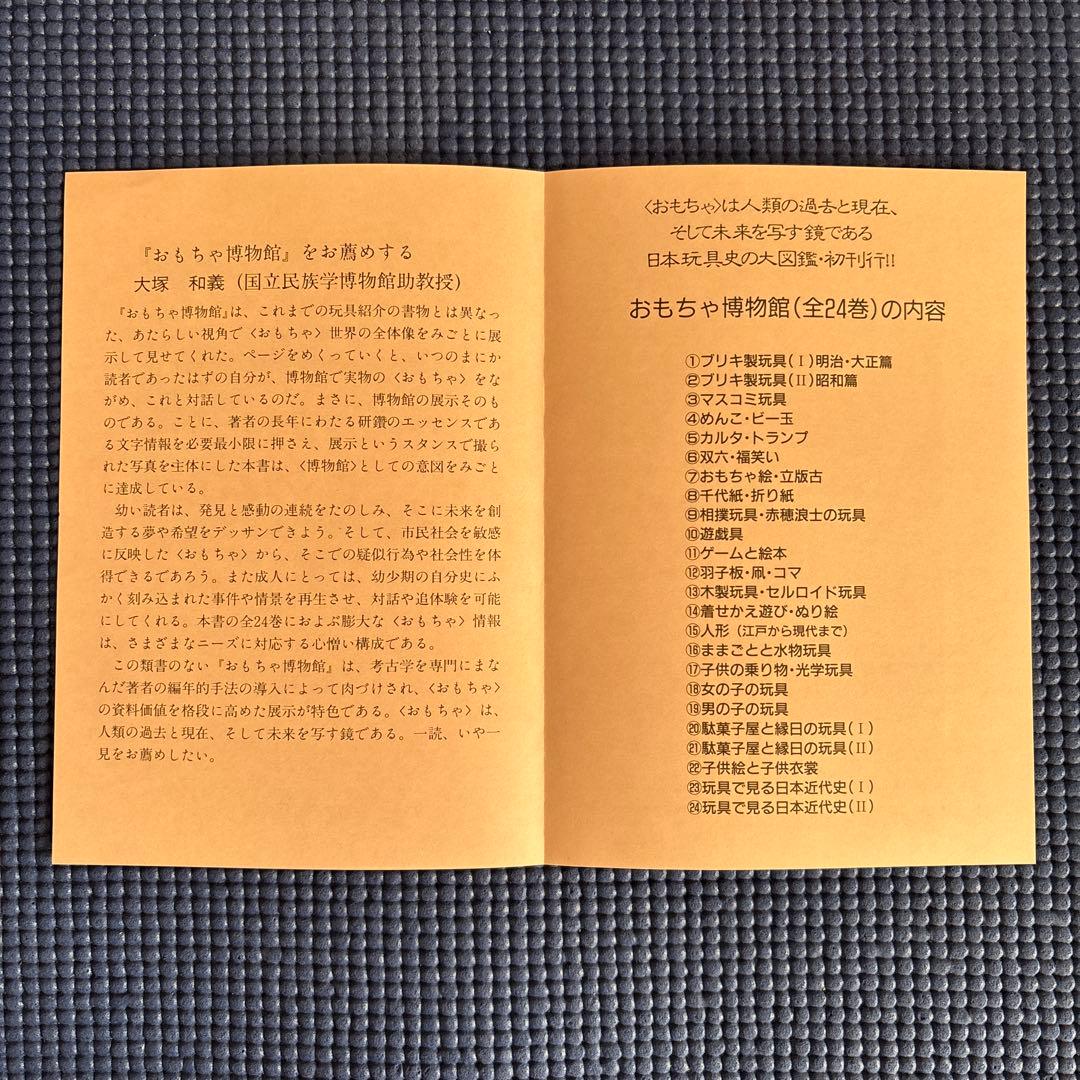 『おもちゃ博物館』をお薦めする
大塚　和義（国立民族学博物館助教授）
『おもちゃ博物館』は、これまでの玩具紹介の書物とは異なっ
た、あたらしい視角で〈おもちゃ〉世界の全体像をみごとに展
示して見せてくれた。ページをめくっていくと、いつのまにか
読者であったはずの自分が、博物館で実物の〈おもちゃ〉をな
がめ、これと対話しているのだ。まさに、博物館の展示そのも
のである。ことに、著者の長年にわたる研鑽のエッセンスであ
る文字情報を必要最小限に押さえ、展示というスタンスで撮ら
れた写真を主体にした本書は、〈博物館〉としての意図をみごと
に達成している。
幼い読者は、発見と感動の連続をたのしみ、そこに未来を創
造する夢や希望をデッサンできよう。そして、市民社会を敏感
に反映した〈おもちゃ〉から、そこでの疑似行為や社会性を体
得できるであろう。また成人にとっては、幼少期の自分史にふ
かく刻み込まれた事件や情景を再生させ、対話や追体験を可能
にしてくれる。本書の全24巻におよぶ膨大な〈おもちゃ〉情報
は、さまざまなニーズに対応する心憎い構成である。
この類書のない『おもちゃ博物館』は、考古学を専門にまな
んだ著者の編年的手法の導入によって肉づけされ、〈おもちゃ〉
の資料価値を格段に高めた展示が特色である。〈おもちゃ〉は、
人類の過去と現在、そして未来を写す鏡である。一読、いや一
見をお薦めしたい。
〈おもちゃ〉は人類の過去と現在、
そして未来を写す鏡である
日本玩具史の大図鑑・初刊行!!
おもちゃ博物館（全24巻）の内容
①ブリキ製玩具（Ⅰ）明治・大正篇
②ブリキ製玩具（Ⅱ）昭和篇
③マスコミ玩具
④めんこ・ビー玉
⑤カルタ・トランプ
⑥双六・福笑い
⑦おもちゃ絵・立版古
⑧千代紙・折り紙
⑨相撲玩具・赤穂浪士の玩具
⑩遊戯具
⑪ゲームと絵本
⑫羽子板・凧・コマ
⑬木製玩具・セルロイド玩具
⑭着せかえ遊び・ぬり絵
⑮人形（江戸から現代まで）
⑯ままごとと水物玩具
⑰子供の乗り物・光学玩具
⑱女の子の玩具
⑲男の子の玩具
⑳駄菓子屋と縁日の玩具（Ⅰ）
㉑駄菓子屋と縁日の玩具（Ⅱ）
㉒子供絵と子供衣裳
㉓玩具で見る日本近代史（Ⅰ）
㉔玩具で見る日本近代史（Ⅱ）